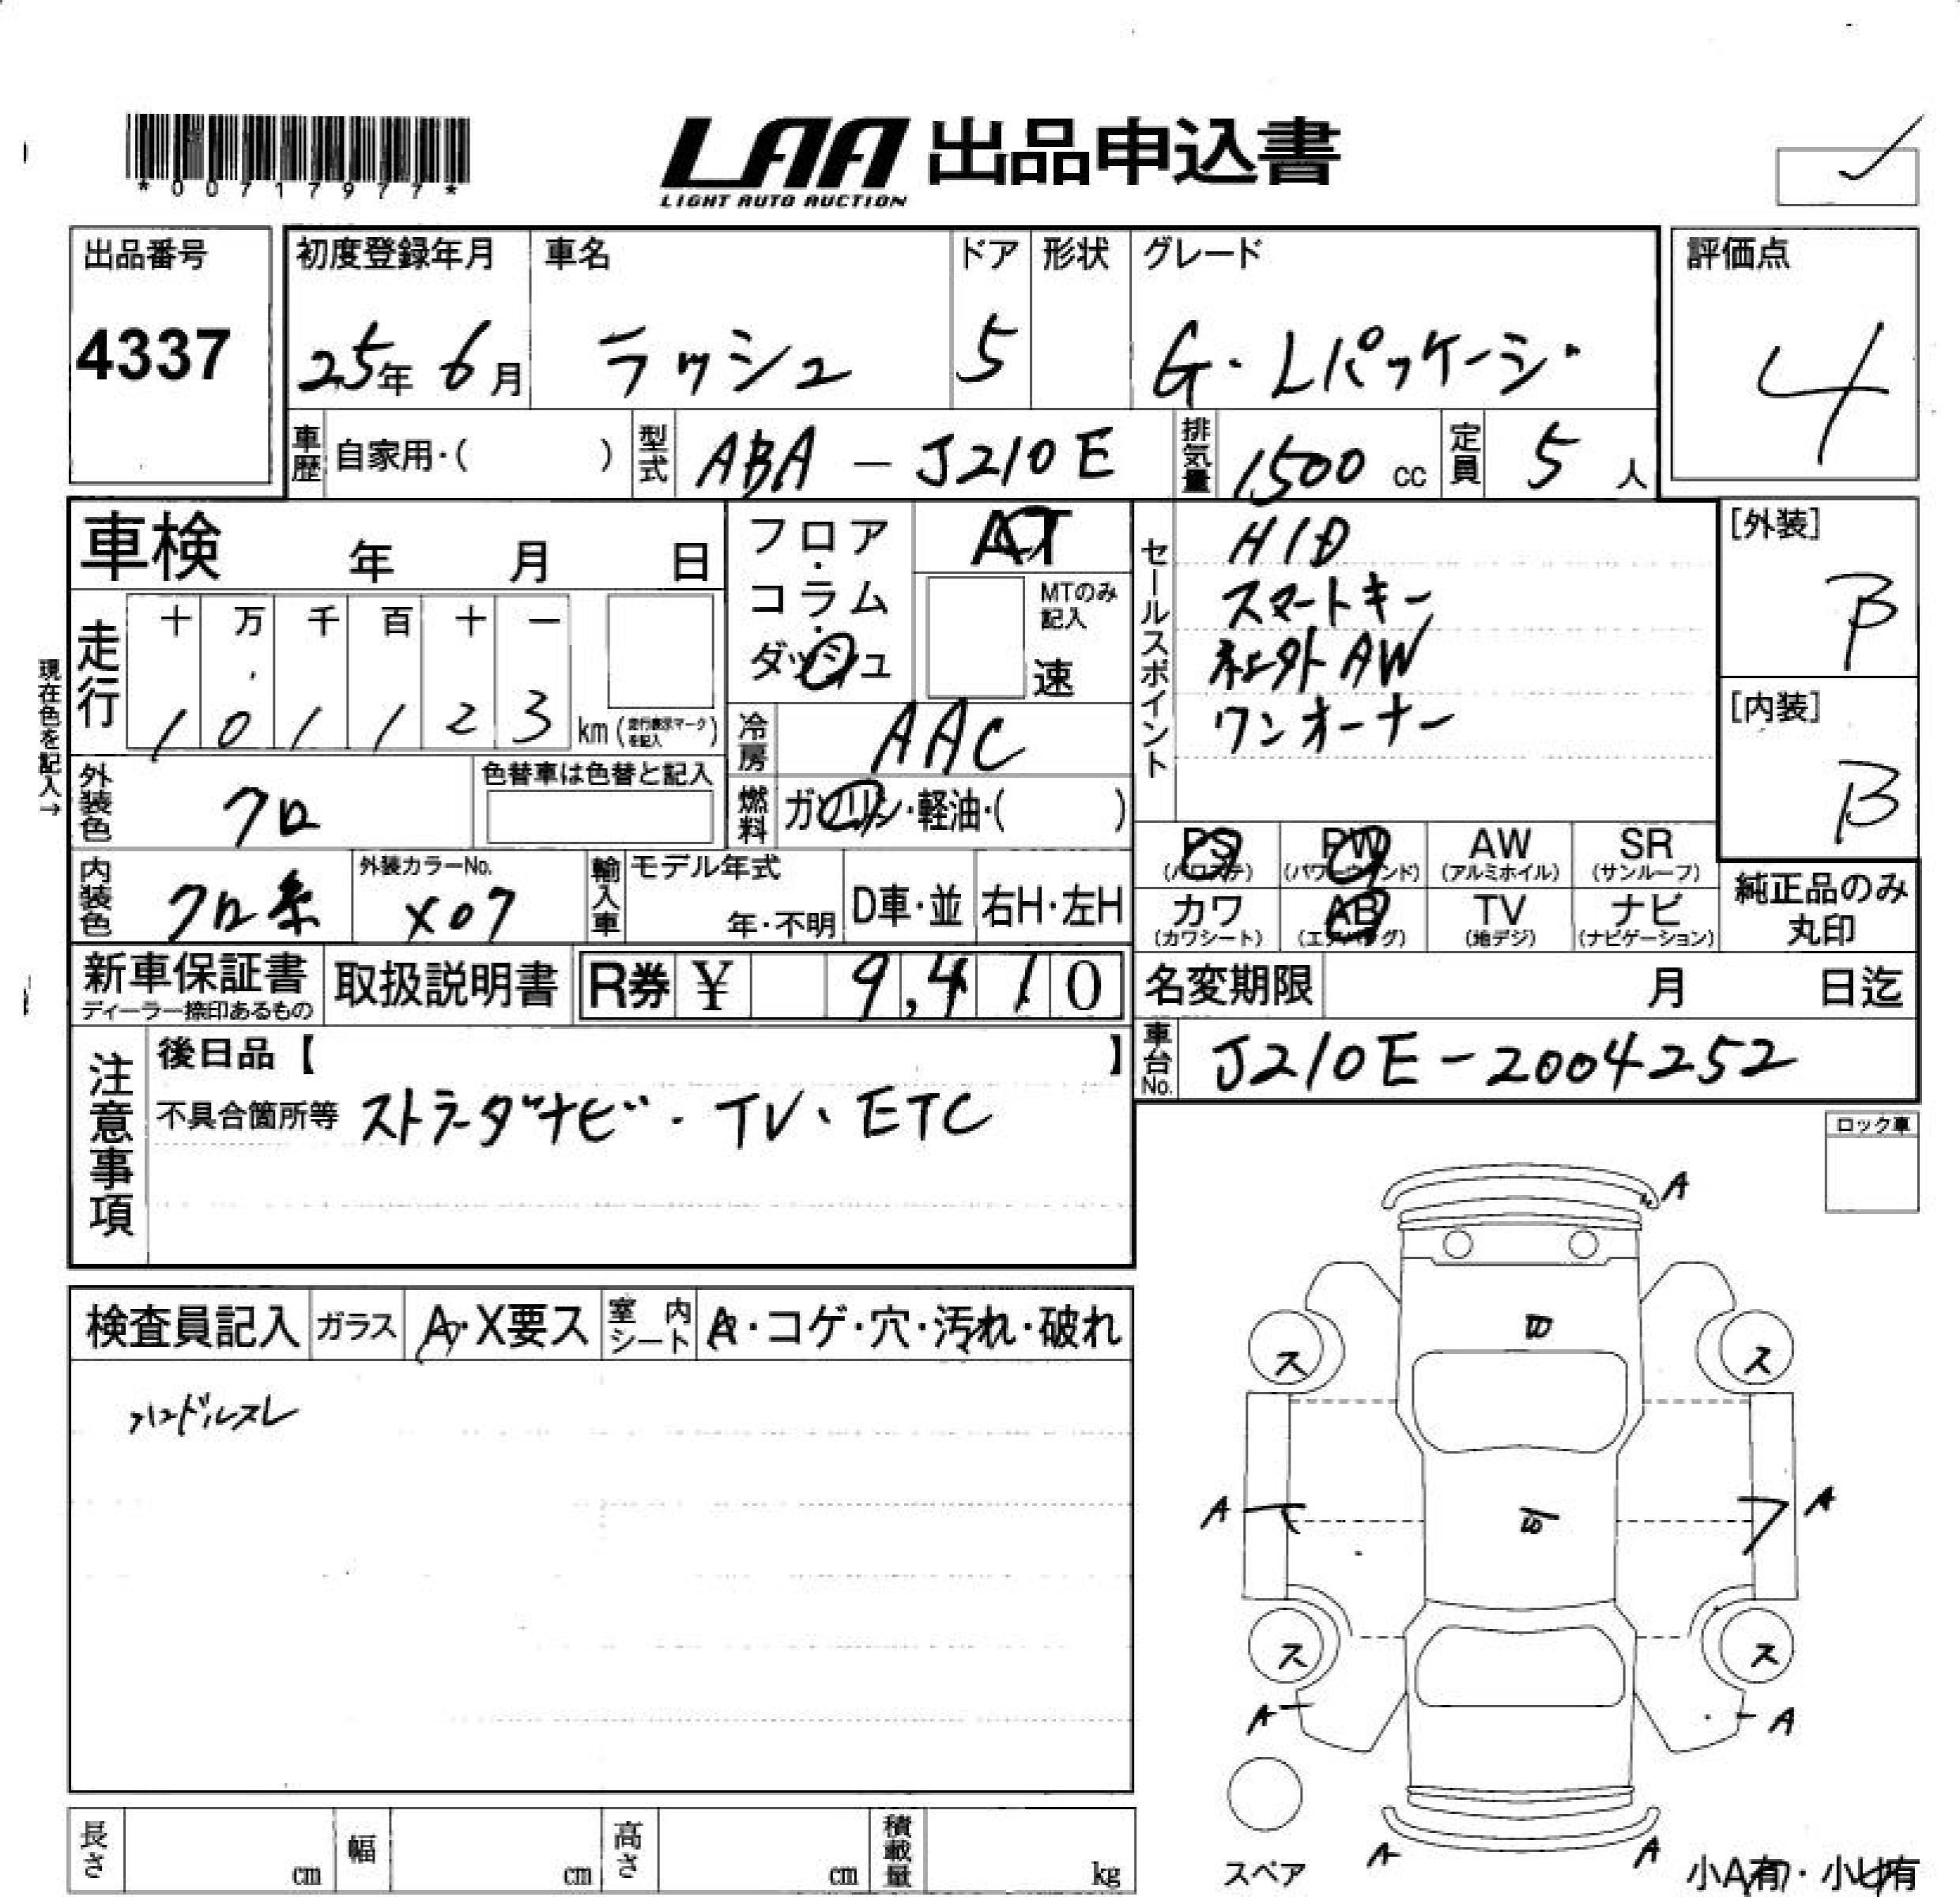 *00717977*
LAA 出品申込書
LIGHT AUTO AUCTION
出品番号
4337
初度登録年月
25年 6月
車名
ラッシュ
ドア
5
形状
グレード
G・Lパッケージ
評価点
4
車歴 自家用・( )
型式 ABA-J210E
排気量 1500 cc
定員 5 人
車検 年 月 日
フロア・コラム・ダッシュ
AT
MTのみ記入
速
セールスポイント
HID
スマートキー
社外AW
ワンオーナー
[外装]
B
[内装]
B
現在色を記入→
走行
十 万 千 百 十 一
1 0 1 1 2 3 km (走行表示マークを記入)
冷房 AAC
外装色 クロ
色替車は色替と記入
燃料 ガソリン・軽油・( )
内装色 クロ系
外装カラーNo.
X07
輸入車
モデル年式
年・不明
D車・並
右H・左H
PS (パワステ)
PW (パワーウインド)
AW (アルミホイル)
SR (サンルーフ)
カワ (カワシート)
AB (エアバッグ)
TV (地デジ)
ナビ (ナビゲーション)
純正品のみ
丸印
新車保証書
ディーラー捺印あるもの
取扱説明書
R券 ¥ 9,410
名変期限 月 日迄
車台No. J210E-2004252
注意事項
後日品【 】
不具合箇所等 ストラーダナビ・TV、ETC
ロック車
検査員記入
ガラス
A・X要ス
室内シート
・コゲ・穴・汚れ・破れ
ハンドルスレ
A
ス ス
A A
ス ス
A A
スペア
A A
小A有・小U有
長さ cm
幅 cm
高さ cm
積載量 kg